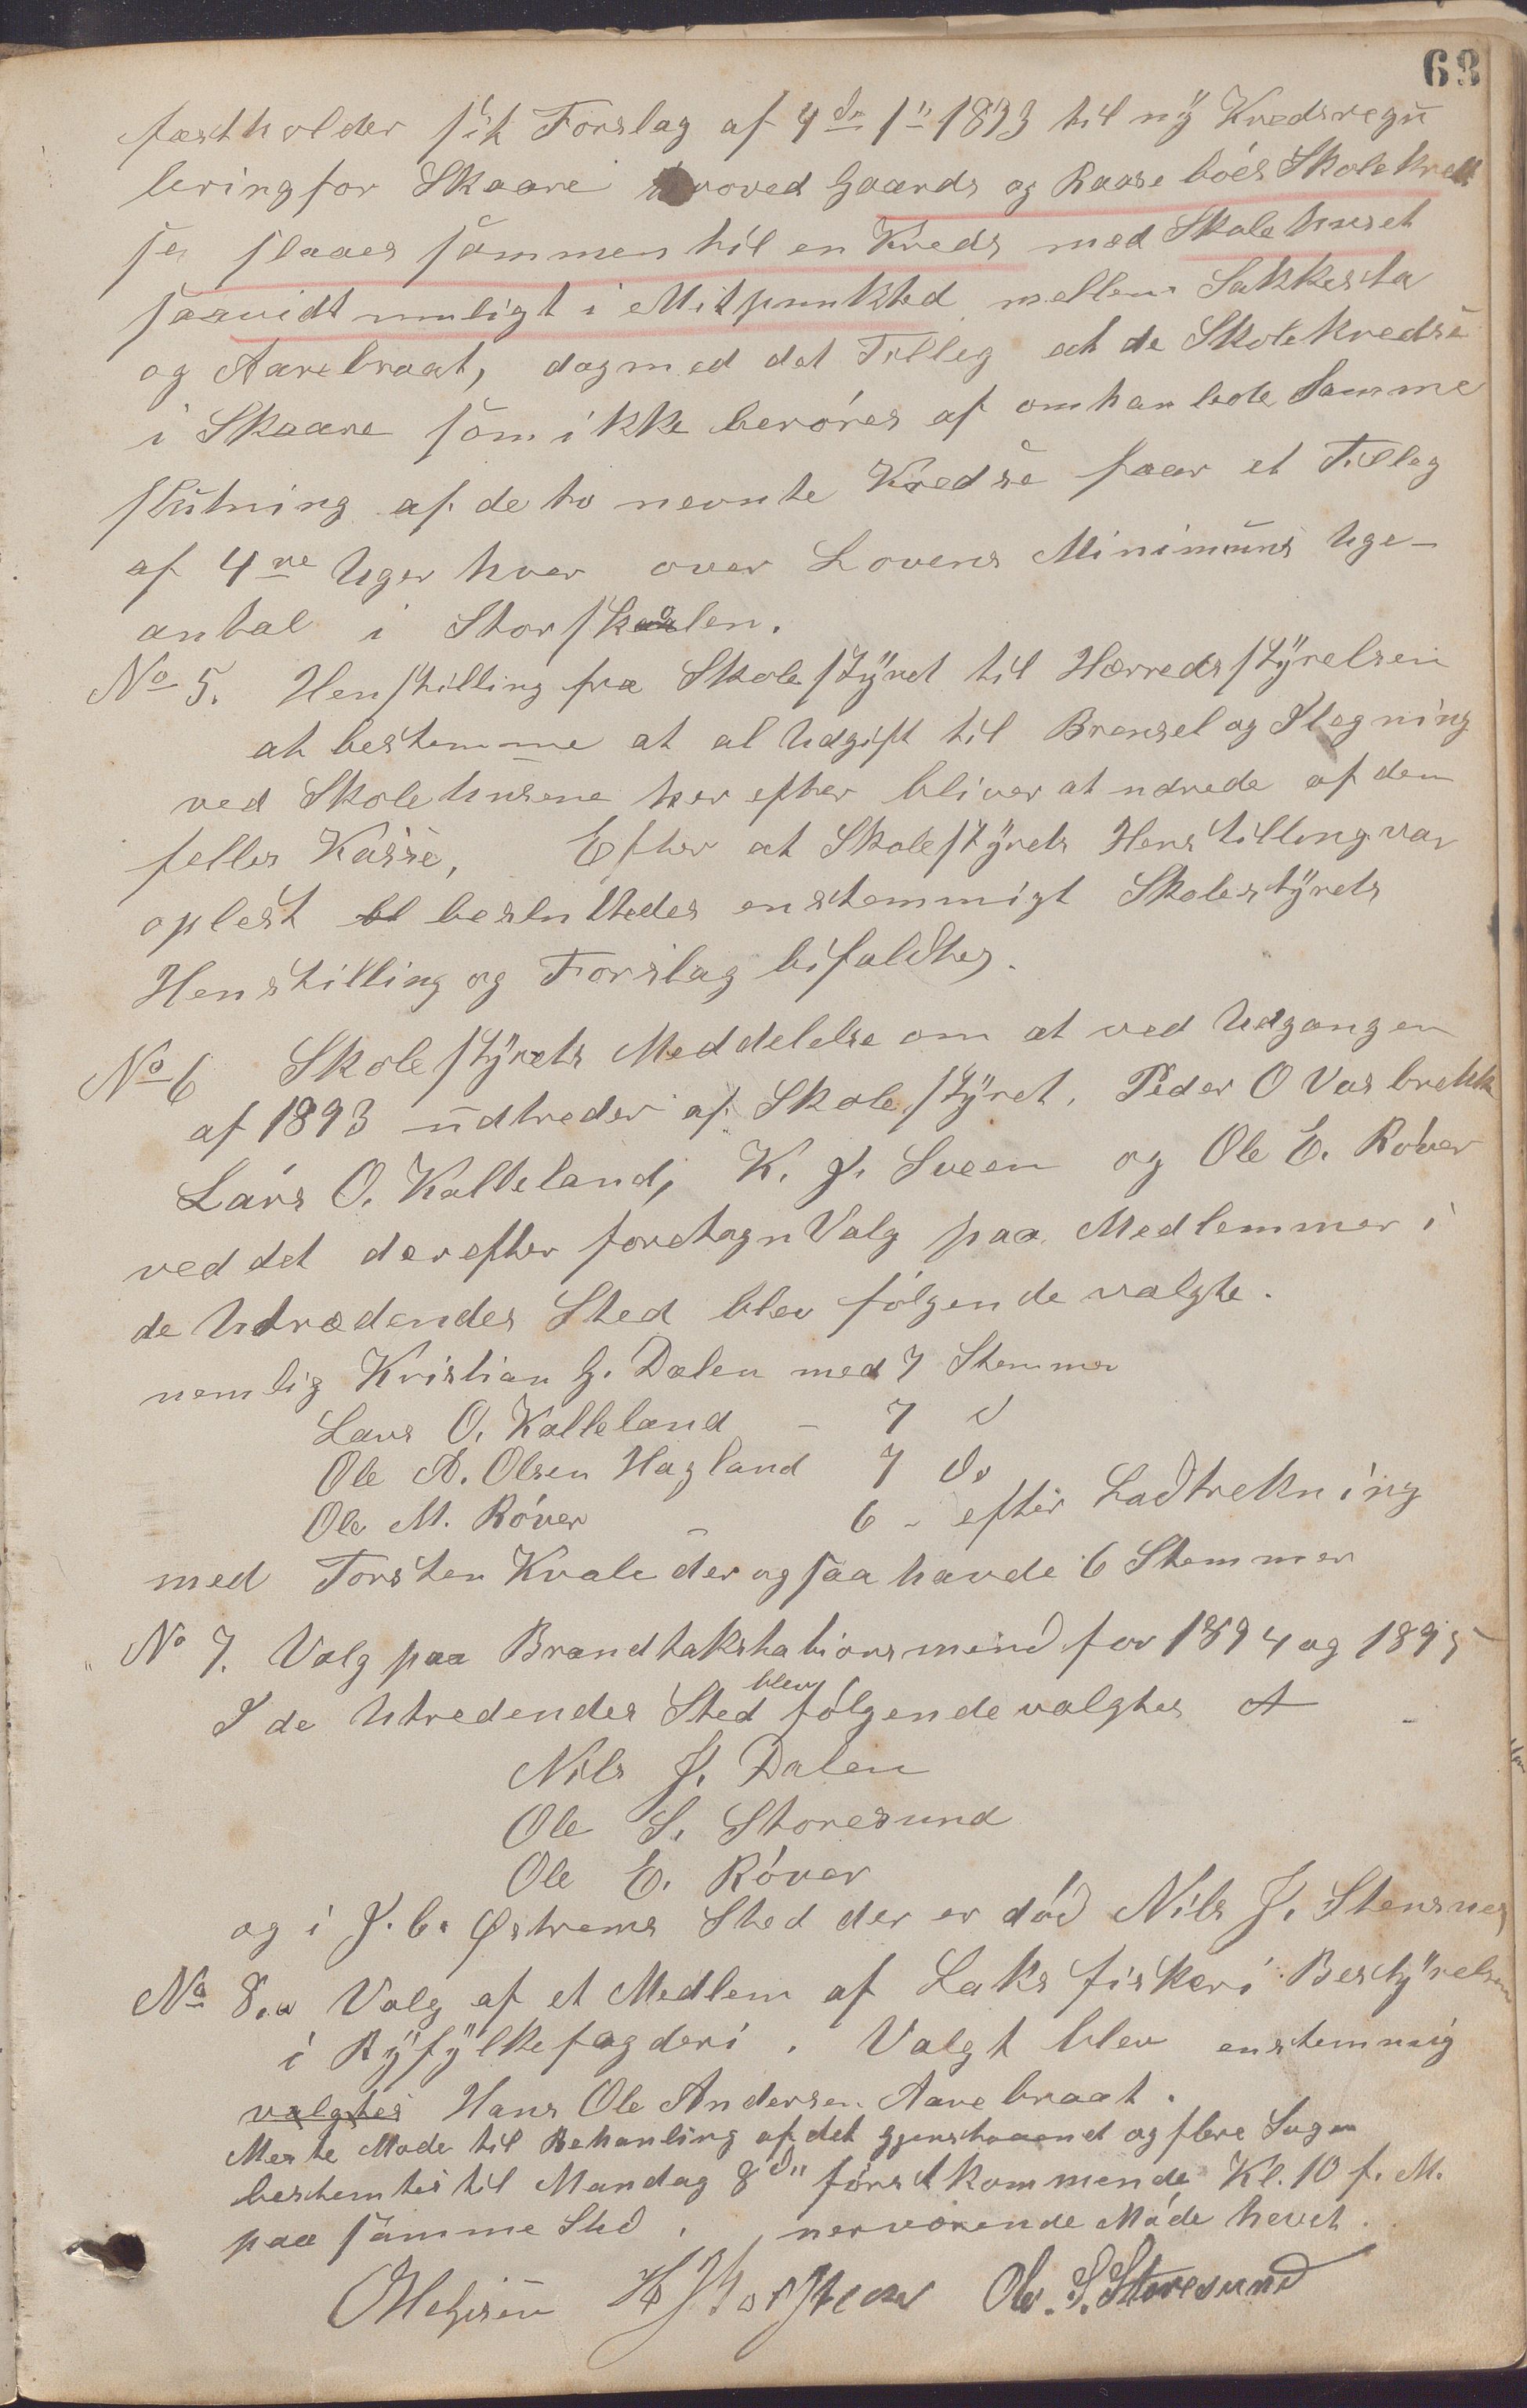 63
fastholder sit Forslag af 4de 1" 1893 til ny Kredsregu
lering for Skaare hvoved Gaards og Raasebøes Skolekred
se slaaes sammen til en Kreds med Skolehuset
saavidt muligt i Mitpunkted mellem Sakkesta
og Aarebraat, dog med det Tilleg at de Skolekredse
i Skaare som ikke berøres af omhanlede Samme
slutning af de to nevnte Kredse faar et Tilleg
af 4re Uger hver over Lovens Minimums Uge-
antal i Storskolen.
No 5. Henstilling fra Skolestyret til Herredsstyrelsen
at bestemme at al Udgift til Brensel og Ilegning
ved Skolehusene her efter bliver at udrede af den
felles Kasse, Efter at Skolestyrets Henstilling var
oplest bl besluttedes enstemmigt Skolestyrets
Henstilling og Forslag bifaldtes.
No 6 Skolestyrets Meddelelse om at ved Udgangen
af 1893 udtreder af Skolestyret, Peder O Vasbrekk
Lars O. Kalleland, K. J. Sveen og Ole E. Røver
ved det derefter foretagn Valg paa Medlemmer i
de Utrædendes Sted blev følgende valgte.
nemlig Kristian G. Dalen med 7 Stemmer
Lars O. Kalleland - 7 d
Ole A. Olsen Hagland 7 do
Ole M. Røver - 6 - efter Lodtrekning
med Torsten Kvale der ogsaa havde 6 Stemmer
No 7. Valg paa Brandtakstationsmend for 1894 og 1895
I de Utredendes Sted blev følgende valgtes A
Nils J. Dalen
Ole S. Storesund
Ole E. Røver
og i J. C. Østrems Sted der er død Nils J. Stensnes
No 8. Valg af et Medlem af Laksfiskeri Bestyrelsen
i Ryfylkefogderi. Valgt blev enstemmig
valgtes Hans Ole Andersen Aarebraat.
Meste Møde til Behanling af det gjenstaaend og flere Sager
bestemtes til Mandag 8d" førstkommende Kl. 10 f. M.
paa samme Sted, nerværende Møde hevet.
Ole S. Storesund